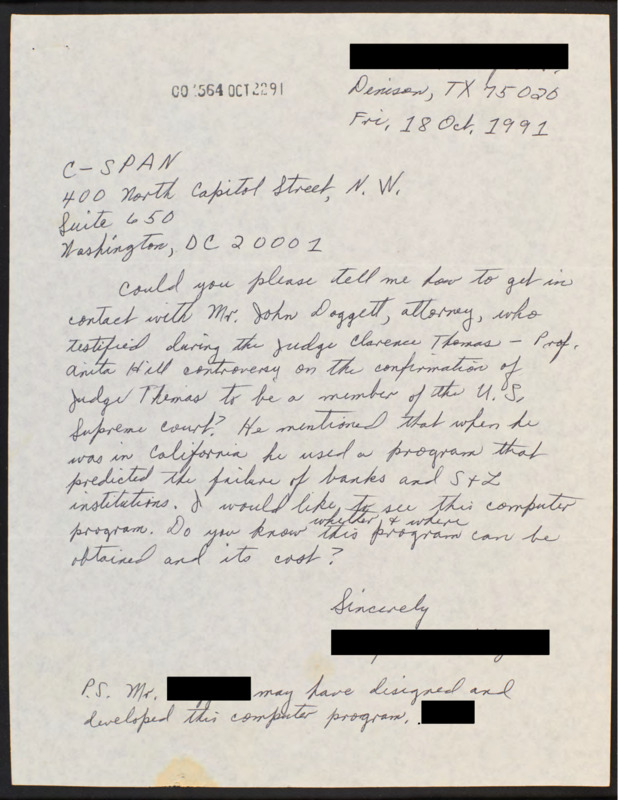 Denison, TX 75020
Fri, 18 Oct. 1991
001564 OCT 22 91
C-SPAN
400 North Capitol Street, N. W.
Suite 650
Washington, DC 20001
Could you please tell me how to get in
contact with Mr. John Doggett, attorney, who
testified during the Judge Clarence Thomas - Prof.
Anita Hill controversy on the confirmation of
Judge Thomas to be a member of the U. S.
Supreme court? He mentioned that when he
was in California he used a program that
predicted the failure of banks and S+L
institutions. I would like to see this computer
whether & where
program. Do you know this program can be
obtained and its cost?
Sincerely
P.S. Mr. may have disigned and
developed this computer program.